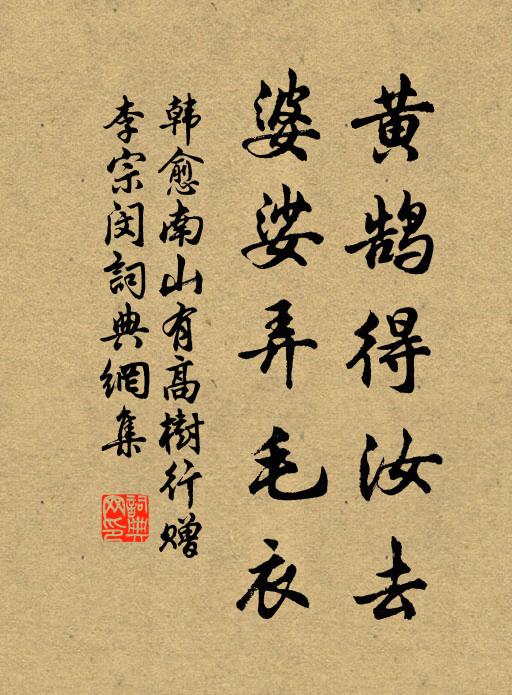 黄鹄得汝去
婆娑弄毛衣
韩愈南山有高樹行赠
李宗闵詞典網集
詞典
网印